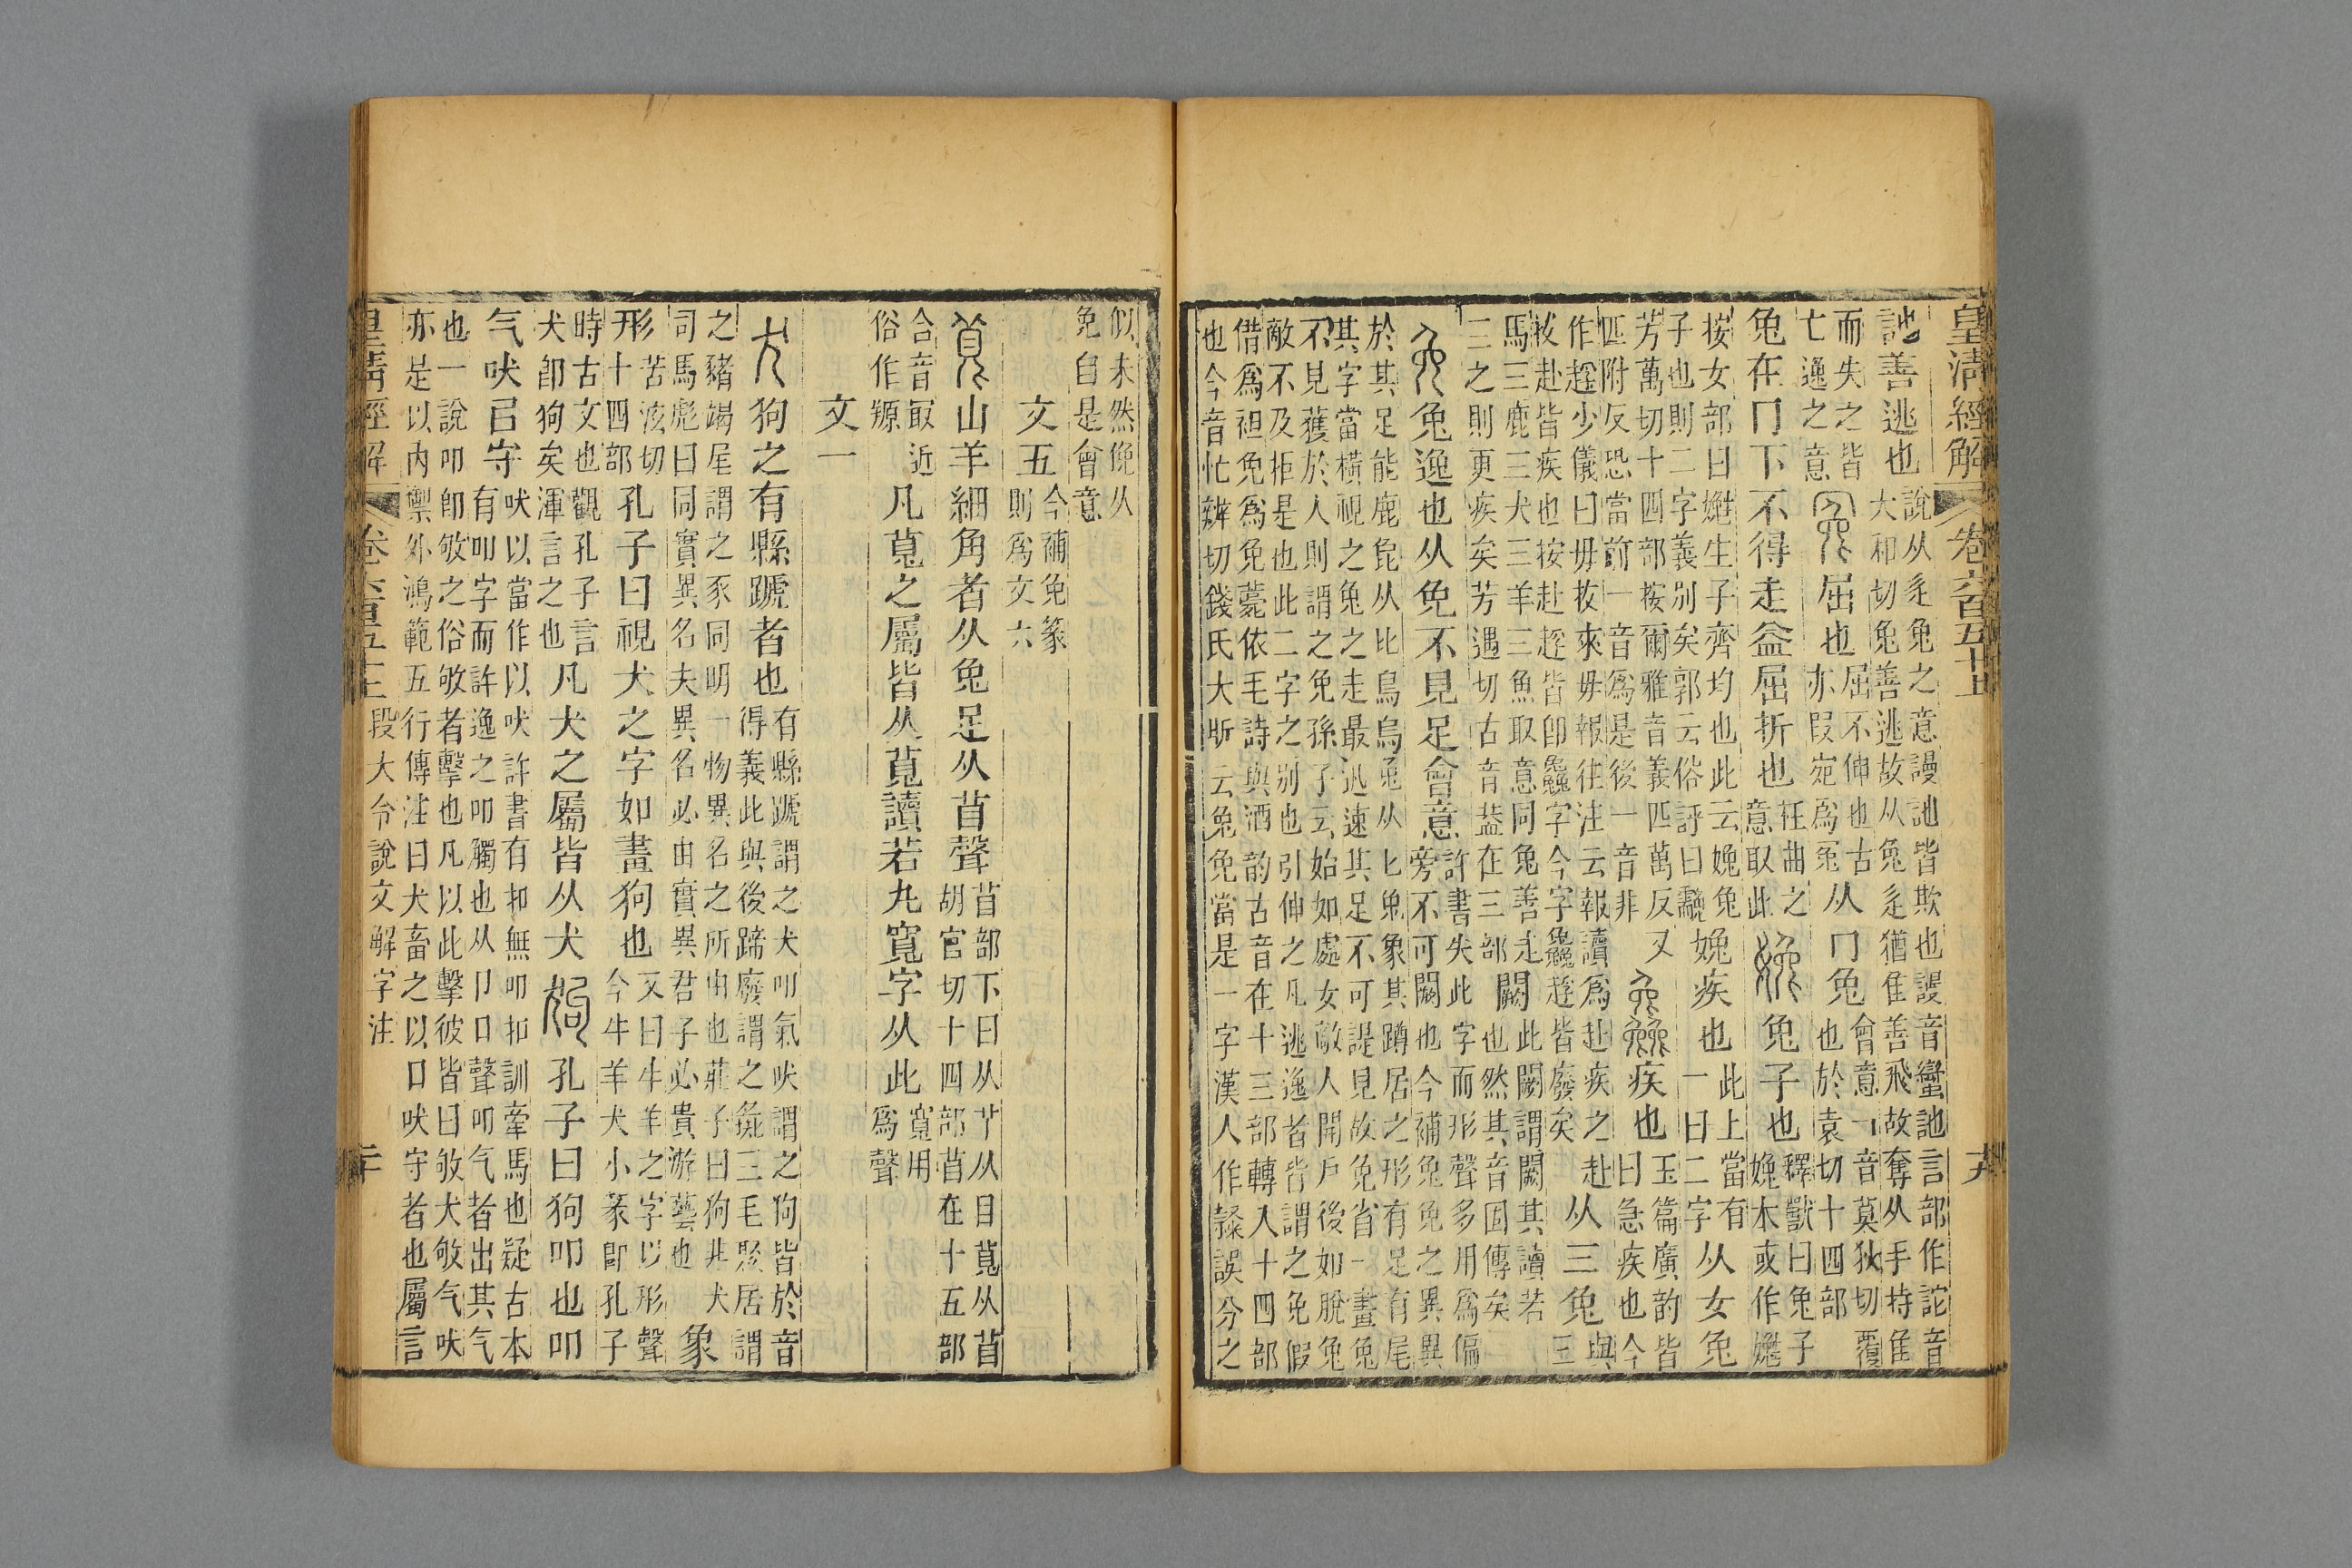 皇清經解 卷六百五十上 十九
訑善逃也 說从辵兔之意謾訑皆欺也謾音蠻訑言部作詑音
大和切兔善逃故从兔辵猶隹善飛故奪从手持隹
而失之皆
亡逸之意 冤屈也 屈不伸也古
亦叚宛爲冤 从冂兔 會意冂音莫狄切覆
也於袁切十四部
兔在冂下不得走益屈折也 枉曲之
意取此 娩兔子也 釋獸曰兔子
娩本或作㜗
按女部曰㜗生子齊均也此云娩兔
子也則二字義別矣郭云俗評曰䨲 娩疾也 此上當有
一曰二字 从女兔
芳萬切十四部按爾雅音義匹萬反又
匹附反恐當前一音爲是後一音非 疾也 玉篇廣韵皆
曰急疾也今
作趕少儀曰毋拔來毋報往注云報讀爲赴疾之赴
拔赴皆疾也按赴趕皆卽字今字趕皆廢矣 从三兔 與
三
馬三鹿三犬三羊三魚取意同兔善走
三之則更疾矣芳遇切古音葢在三部 闕 此闕謂闕其讀若
也然其音固傳矣
免兔逸也从免不見足會意 許書失此字而形聲多用爲偏
旁不可闕也今補兔免之異異
於其足能鹿毘从比鳥烏㲋从匕兔象其蹲居之形有足有尾
其字當橫視之兔之走最迅速其足不可諟見故免省一畫兔
不見獲於人則謂之免孫子云始如處女敵人開戶後如脫兔
敵不及拒是也此二字之別也引伸之凡逃逸者皆謂之免假
借爲袒免免薨依毛詩與酒韵古音在十三部轉入十四部
也今音忙辨切錢氏大昕云兔免當是一字漢人作隸誤分之
似未然俛从
免自是會意
文五 今補免篆
則爲文六
萈山羊細角者从兔足从苜聲 苜部下曰从艸从目萈从苜
胡官切十四部苜在十五部
合音冣近
俗作羱 凡萈之屬皆从萈讀若丸寬字从此 寬用
爲聲
文一
犬狗之有縣蹏者也 有縣蹏謂之犬叩氣吠謂之狗皆於音
得義此與後蹏廢謂之㹻三毛聚居謂
之豬竭尾謂之豕同明一物異名之所由也莊子曰狗非犬
司馬彪曰同實異名夫異名必由實異君子必貴游藝也 象
形 苦泫切
十四部 孔子曰視犬之字如畫狗也 又曰牛羊之字以形聲
今牛羊犬小篆卽孔子
時古文也觀孔子言
犬卽狗矣渾言之也 凡犬之屬皆从犬狗孔子曰狗叩也叩
气吠㠯守 吠以當作以吠許書有扣無叩扣訓牽馬也疑古本
有叩字而許逸之叩觸也从卩口聲叩气者出其气
也一說叩卽敂之俗敂者擊也凡以此擊彼皆曰敂犬敂气吠
亦是以內禦外鴻範五行傳注曰犬畜之以口吠守者也屬言
皇清經解 卷六百五十上 段大令說文解字注 二十